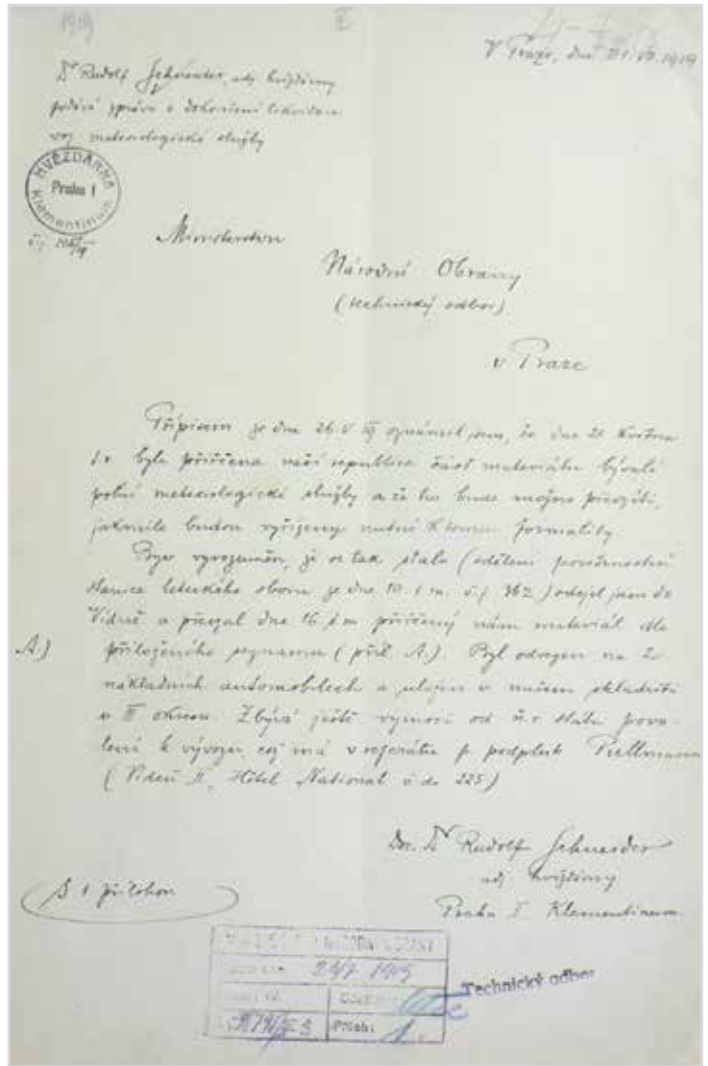 1919
V Praze, dne 21/VII 1919
Dr Rudolf Schneider, adj. hvězdárny
podává zprávu o dokončení likvidace
voj. meteorologické služby
HVĚZDÁRNA
Praha I
Klementinum
Ministerstvu
Národní Obrany
(technický odbor)
v Praze
Přípisem ze dne 26 V oznámil jsem, že dne 21 května
t.r. byla přiřčena naší republice část materiálu bývalé
polní meteorologické služby a že ho bude možno převzíti,
jakmile budou vyřízeny nutné k tomu formality.
Byv vyrozuměn, že se tak stalo (sdělení povětrnostní
stanice leteckého sboru ze dne 10. t. m. č.j. 362) odejel jsem do
Vídně a převzal dne 16 t.m. přiřčený nám materiál dle
A.) přiloženého seznamu (příl. A.). Byl odvezen na 2
nákladních automobilech a uložen v našem skladišti
v III okresu. Zbývá ještě vymoci od n.r. státu povo-
lení k vývozu, což má v referátu p. podpluk.
(Vídeň II, Hôtel National č. d. 225)
Doc. Dr Rudolf Schneider
adj. hvězdárny
Praha I. Klementinum.
S 1 přílohou
NÁRODNÍ OBRANY
24/7 1919
Příloh: 1.
Technický odbor